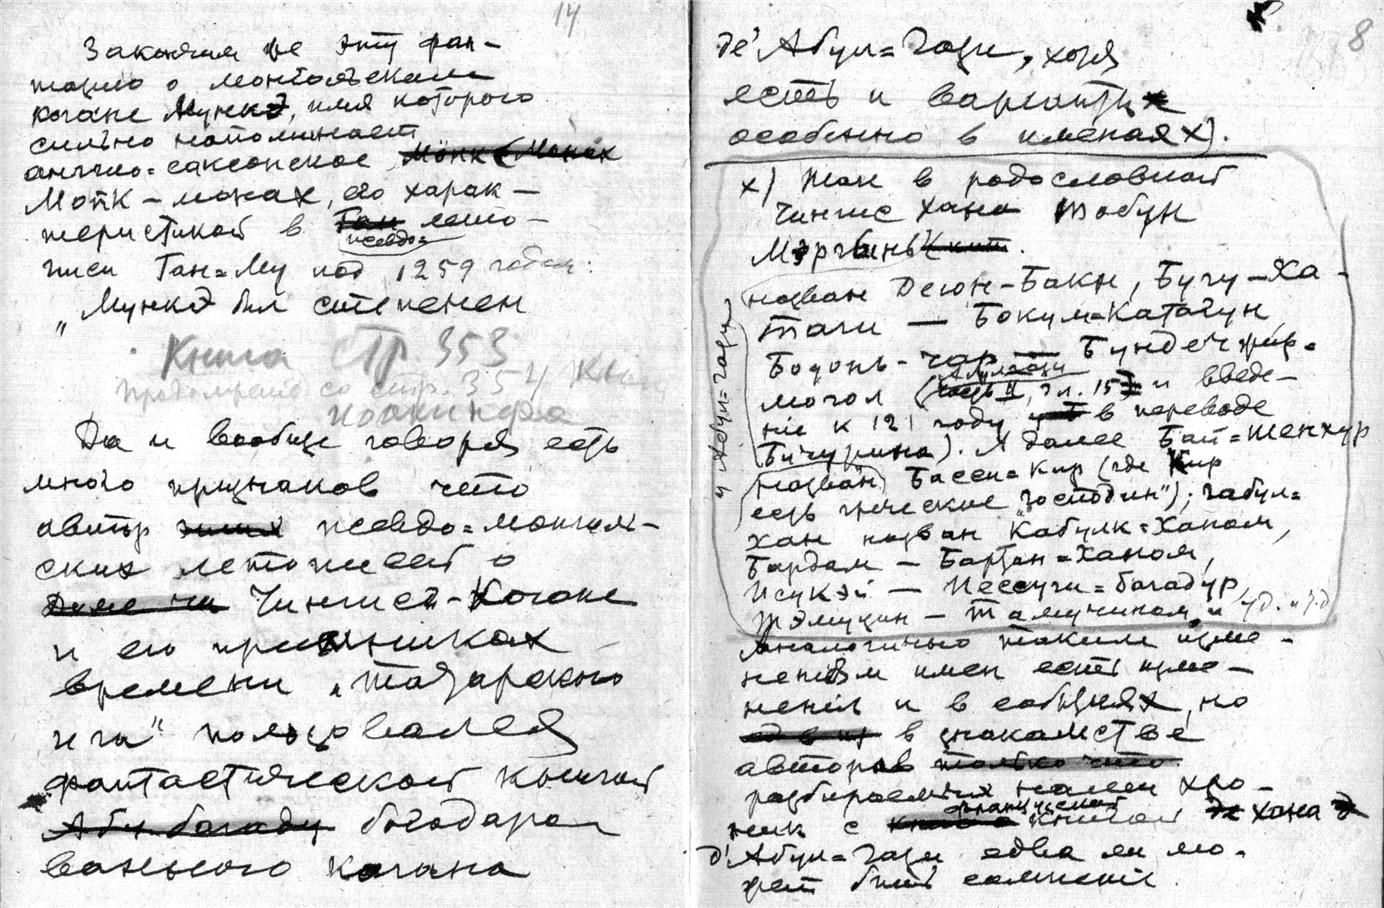 14
Закончим же эту фан-
тазию о монгольском
когане Мункэ, имя которого
сильно напоминает
англо=саксонское Монк (Монах
Монк – монах, его харак-
теристикой в лето-
псевдо=
писи Ган=Му под 1259 годом:
„Мункэ был степенен
Книга стр. 353
Продолжение со стр. 354 книги
Иоакинфа
Да и вообще говоря есть
много признаков что
автор этих псевдо=монголь-
ских летописей о
Чингист-Когане
и его преемниках
времени „татарского
ига" пользовался
фантастической книгой
Абул богаду богодаро
ванного когана
8
де' Абул=Гази, хотя
есть и варианты
особенно в именах х).
х) Так в родословной
Чингис хана Тобун
Мэргынь
назван Деюн-Бакн, Бугу-Ха-
таги — Бокум=Катагун
Бодонь-чар — Бундечжир=
могол (часть II, гл. 15 и введе-
ние к 121 году в переводе
Бичурина). А далее Бай=Шенхур
у Абул=Гази
(назван) Бассы=Кир (где Кир
есть греческие „господин"); Габул=
хан назван Кабулк=Ханом,
Бардам — Бартан=Ханом,
Исукэй — Иессуги=богадур,
Тэмуцин — Тамучином и т.д. и т.д
Аналогично таким изме-
нениям имен есть изме-
нения и в событиях, но
в знакомстве
авторов только что
разбираемых нами хро-
французской
ник с книгой хана
д'Абул=Гази едва ли мо-
жет быть сомнение.